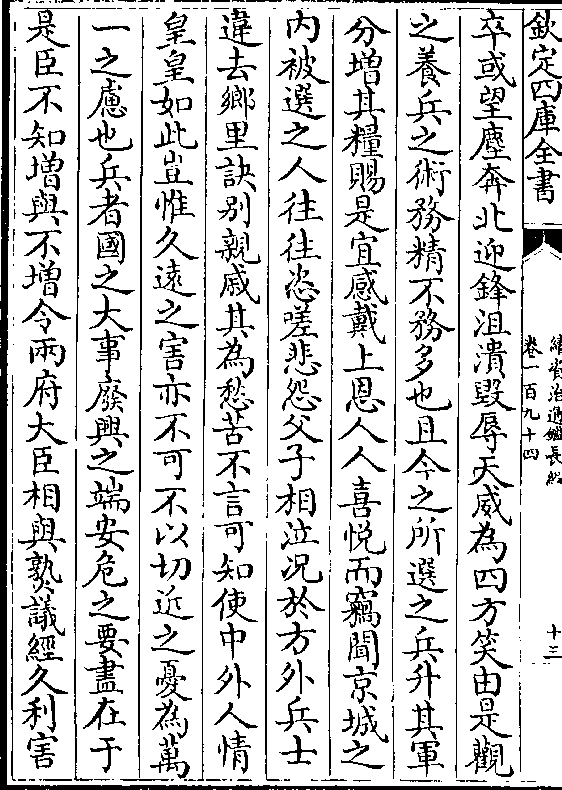 欽定四庫全書
續資治通鑑長編
卷一百九十四
十三
卒或望塵奔北迎鋒沮潰毀辱天威為四方笑由是觀
之養兵之術務精不務多也且今之所選之兵升其軍
分增其糧賜是宜感戴上恩人人喜悅而竊聞京城之
内被選之人往往恣嗟悲怨父子相泣況於方外兵士
違去鄉里訣别親戚其為愁苦不言可知使中外人情
皇皇如此豈惟久遠之害亦不可不以切近之憂為萬
一之慮也兵者國之大事廢興之端安危之要盡在于
是臣不知增與不增令兩府大臣相與孰議經久利害